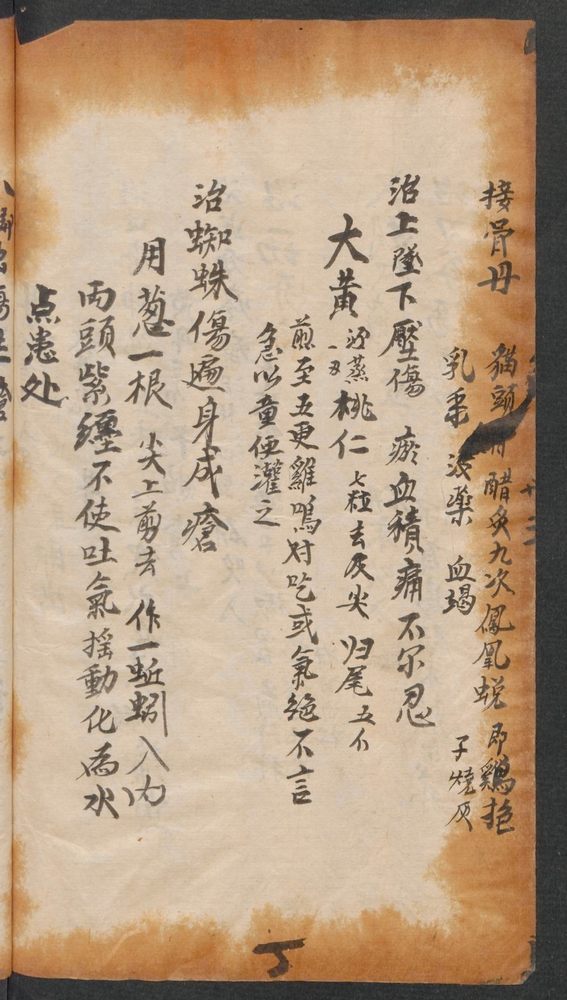 接骨丹 猫頭 醋炙九次鳳凰蜕 即鷄抱
子燒灰
乳 没藥 血竭
治上墜下壓傷 瘀血積痛不尔忍
大黄 酒蒸一 桃仁 七粒去皮尖 归尾 五个
煎至五更雞鳴对吃或氣绝不言
急以童便灌之
治蜘蛛傷遍身成瘡
用葱一根 尖上剪去 作一蚯蚓入内
両頭紫纏不使吐氣摇動化為水
点患处